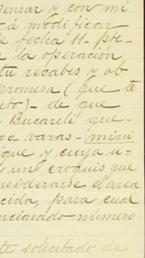 pensar y con mi
á modificar
fecha 11. pte-
la operación
tu recabes y ob
promesa (que te
to) de que
Bucareli que-
varas - mini
que y cuya u-
un croquis que
considerarse el area
cida, para cual
ncionado número
solicitado de